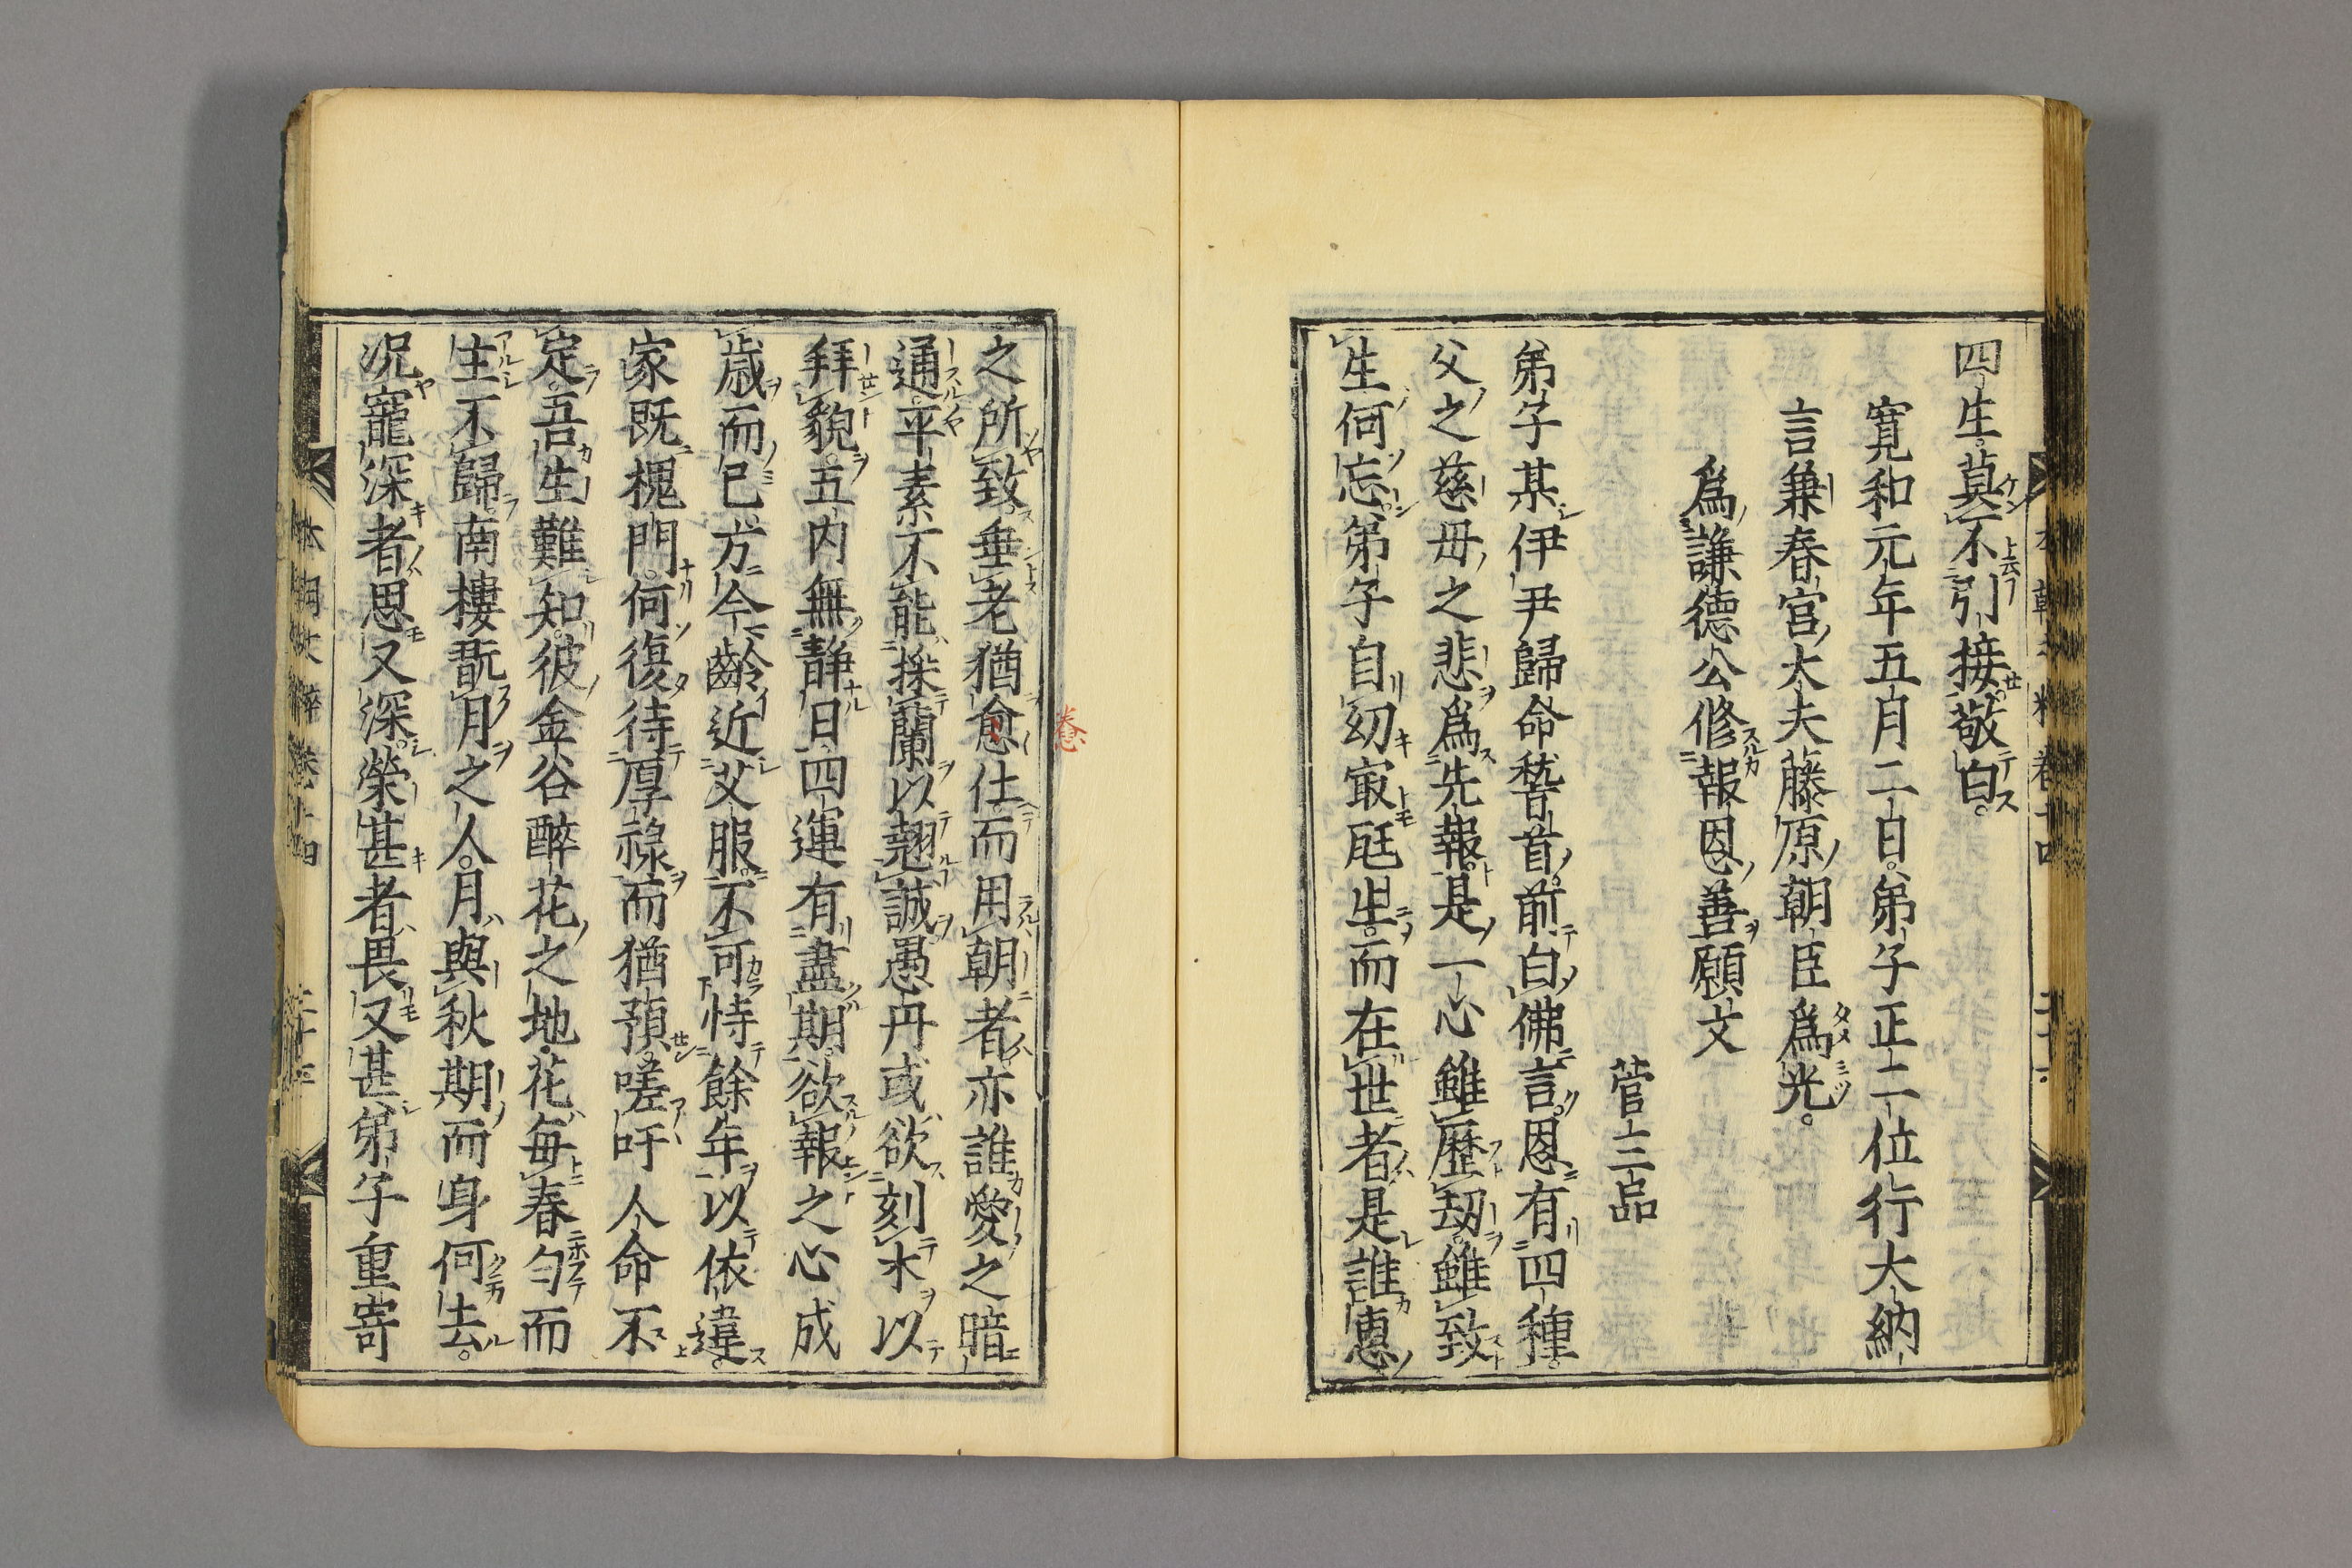 四生。莫不引接。敬白。
寛和元年五月二日。弟子正二位行大納
言兼春宮大夫藤原朝臣爲光。
爲謙德公修報恩善願文
菅三品
弟子某伊尹歸命稽首。前白佛言。恩有四種。
父之慈母之悲爲先報。是一心雖歷劫。雖致
生何忘。弟子自幼宼㞐生。而在世者是誰恵
之所致。垂老猶愈仕而用朝者亦誰愛之暗
通。平素不能採蘭以翹誠愚丹或欲刻木以
拜貌。五内無靜日四運有盡期。欲報之心成
歲而已。方今齡近艾服。不可恃餘年以依違。
家既槐門。何復待厚祿而猶預。嗟吁人命不
定。吾生難知。彼金谷醉花之地花每春匂而
主不歸。南樓翫月之人。月與秋期而身何去。
况寵深者思又深。榮甚者畏又甚。弟子重寄
養
本朝文粹卷十四